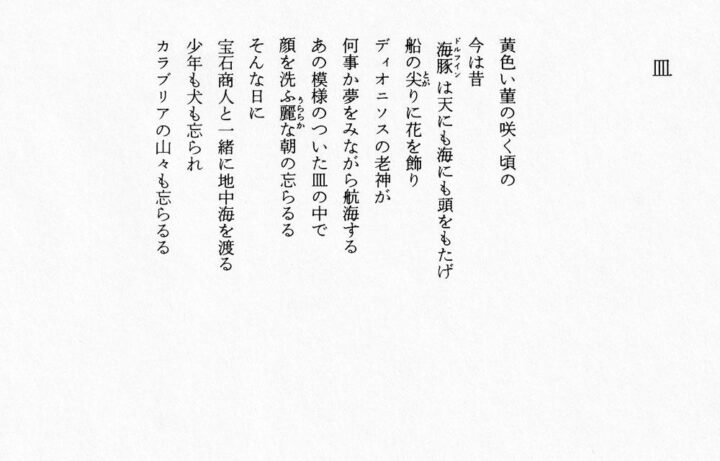 皿
黄色い菫の咲く頃の
今は昔
海豚は天にも海にも頭をもたげ
ドルフイン
船の尖りに花を飾り
とが
ディオニソスの老神が
何事か夢をみながら航海する
あの模様のついた皿の中で
顔を洗ふ麗な朝の忘らるる
うららか
そんな日に
宝石商人と一緒に地中海を渡る
少年も犬も忘られ
カラブリアの山々も忘らるる